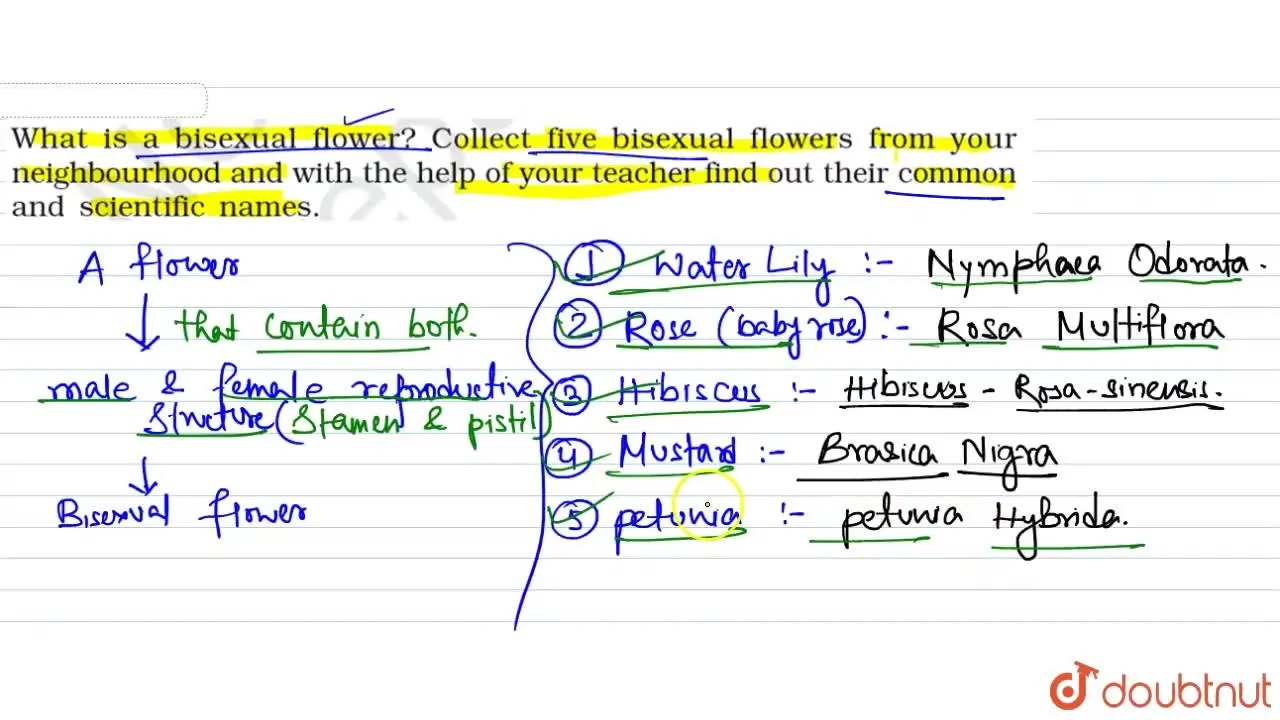 What is a bisexual flower? Collect five bisexual flowers from your
neighbourhood and with the help of your teacher find out their common
and scientific names.
A flower
that contain both.
male & female reproductive
Structure (Stamen & pistil)
Bisexual flower
1 Water Lily :- Nymphaea Odorata.
2 Rose (baby rose) :- Rosa Multiflora
3 Hibiscus :- Hibiscus - Rosa-sinensis.
4 Mustard :- Brasica Nigra
5 petunia :- petunia Hybrida.
doubtnut